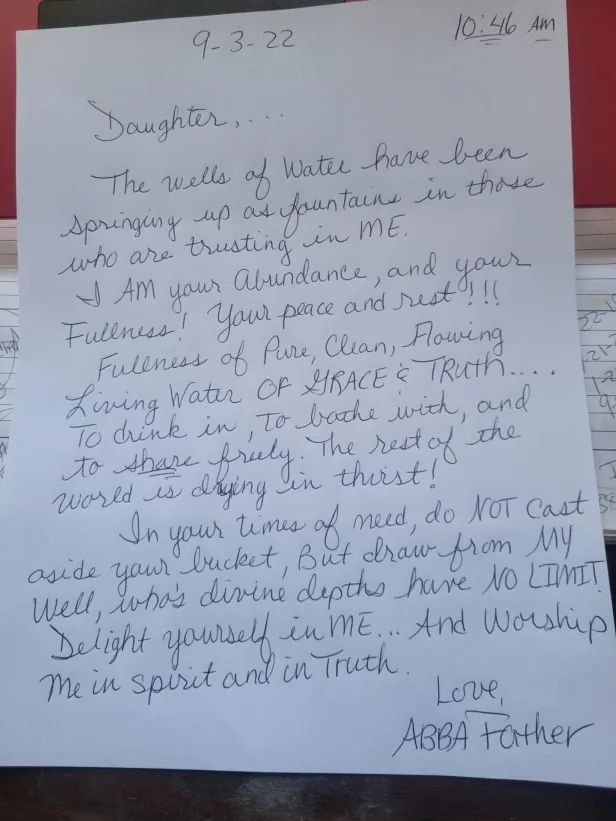 9-3-22
10:46 AM
Daughter, ....
The wells of Water have been
springing up as fountains in those
who are trusting in ME.
I AM your Abundance, and your
Fullness! Your peace and rest!!!
Fullness of Pure, Clean, Flowing
Living Water OF GRACE & TRUTH....
To drink in, To bathe with, and
to share freely. The rest of the
world is drying in thirst!
In your times of need, do NOT cast
aside your bucket, But draw from MY
Well, who's divine depths have NO LIMIT!
Delight yourself in ME... And Worship
Me in spirit and in Truth.
Love,
ABBA Father